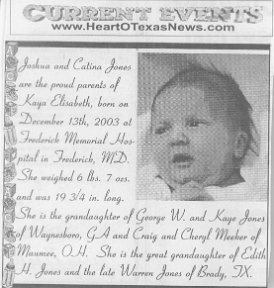 CURRENT EVENTS
www.HeartOTexasNews.com
Joshua and Catina Jones
are the proud parents of
Kaya Elisabeth, born on
December 13th, 2003 at
Frederick Memorial Hos-
pital in Frederick, MD.
She weighed 6 lbs. 7 ozs.
and was 19 3/4 in. long.
She is the grandaughter of George W. and Kaye Jones
of Waynesboro, GA and Craig and Cheryl Meeker of
Maumee, O.H. She is the great grandaughter of Edith
H. Jones and the late Warren Jones of Brady, TX.